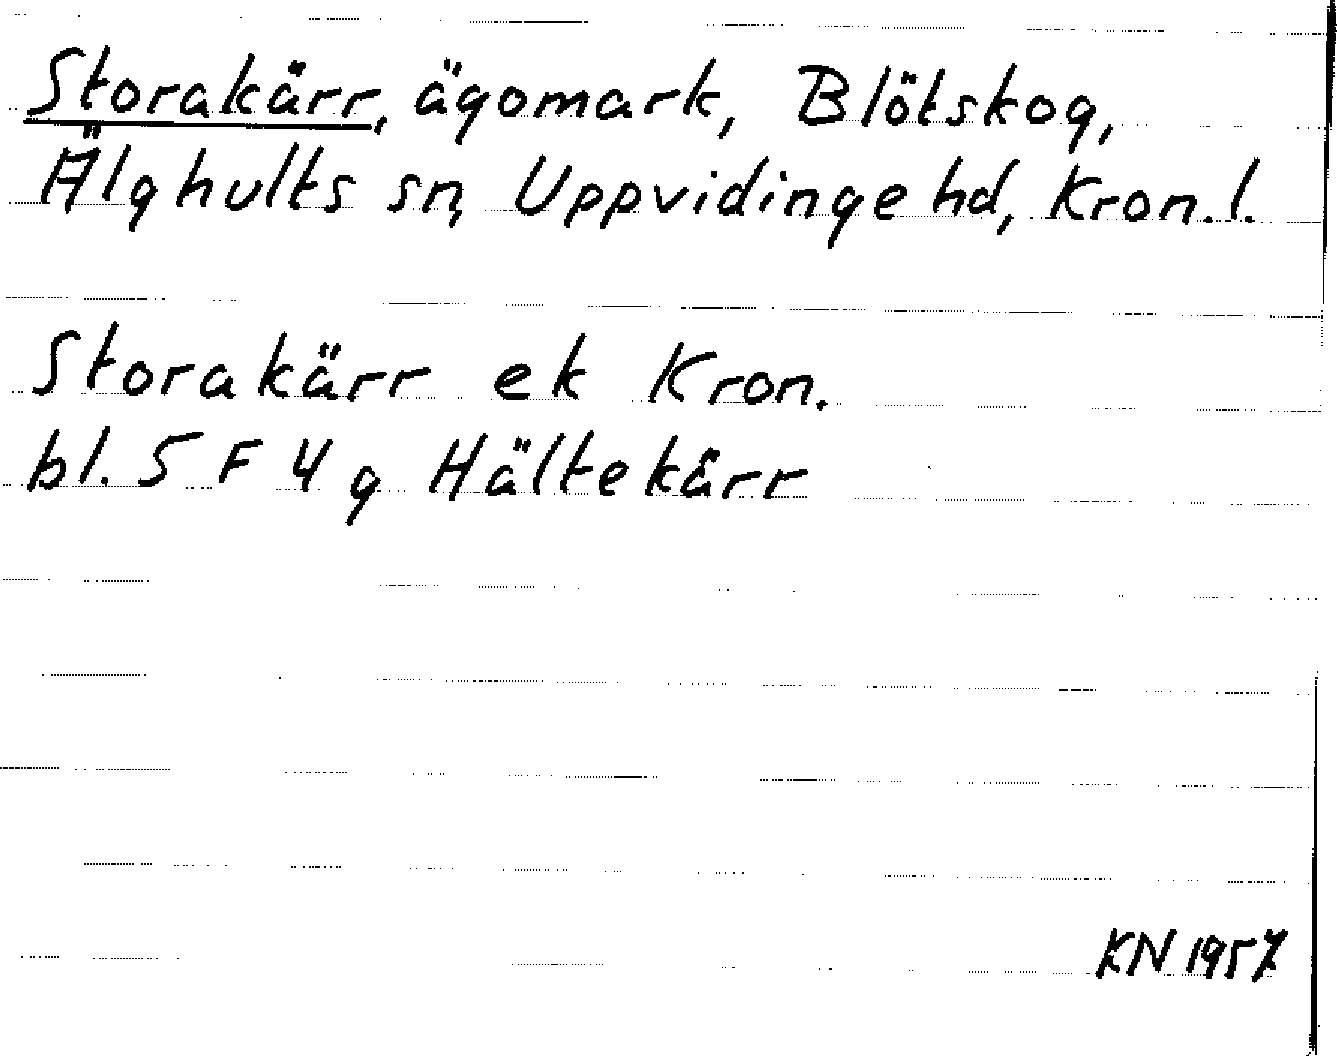 Storakärr, ägomark, Blötskog,
Älghults sn, Uppvidinge hd, Kron. l.
Storakärr ek Kron.
bl. 5 F 4 g Hältekärr
KN 1957